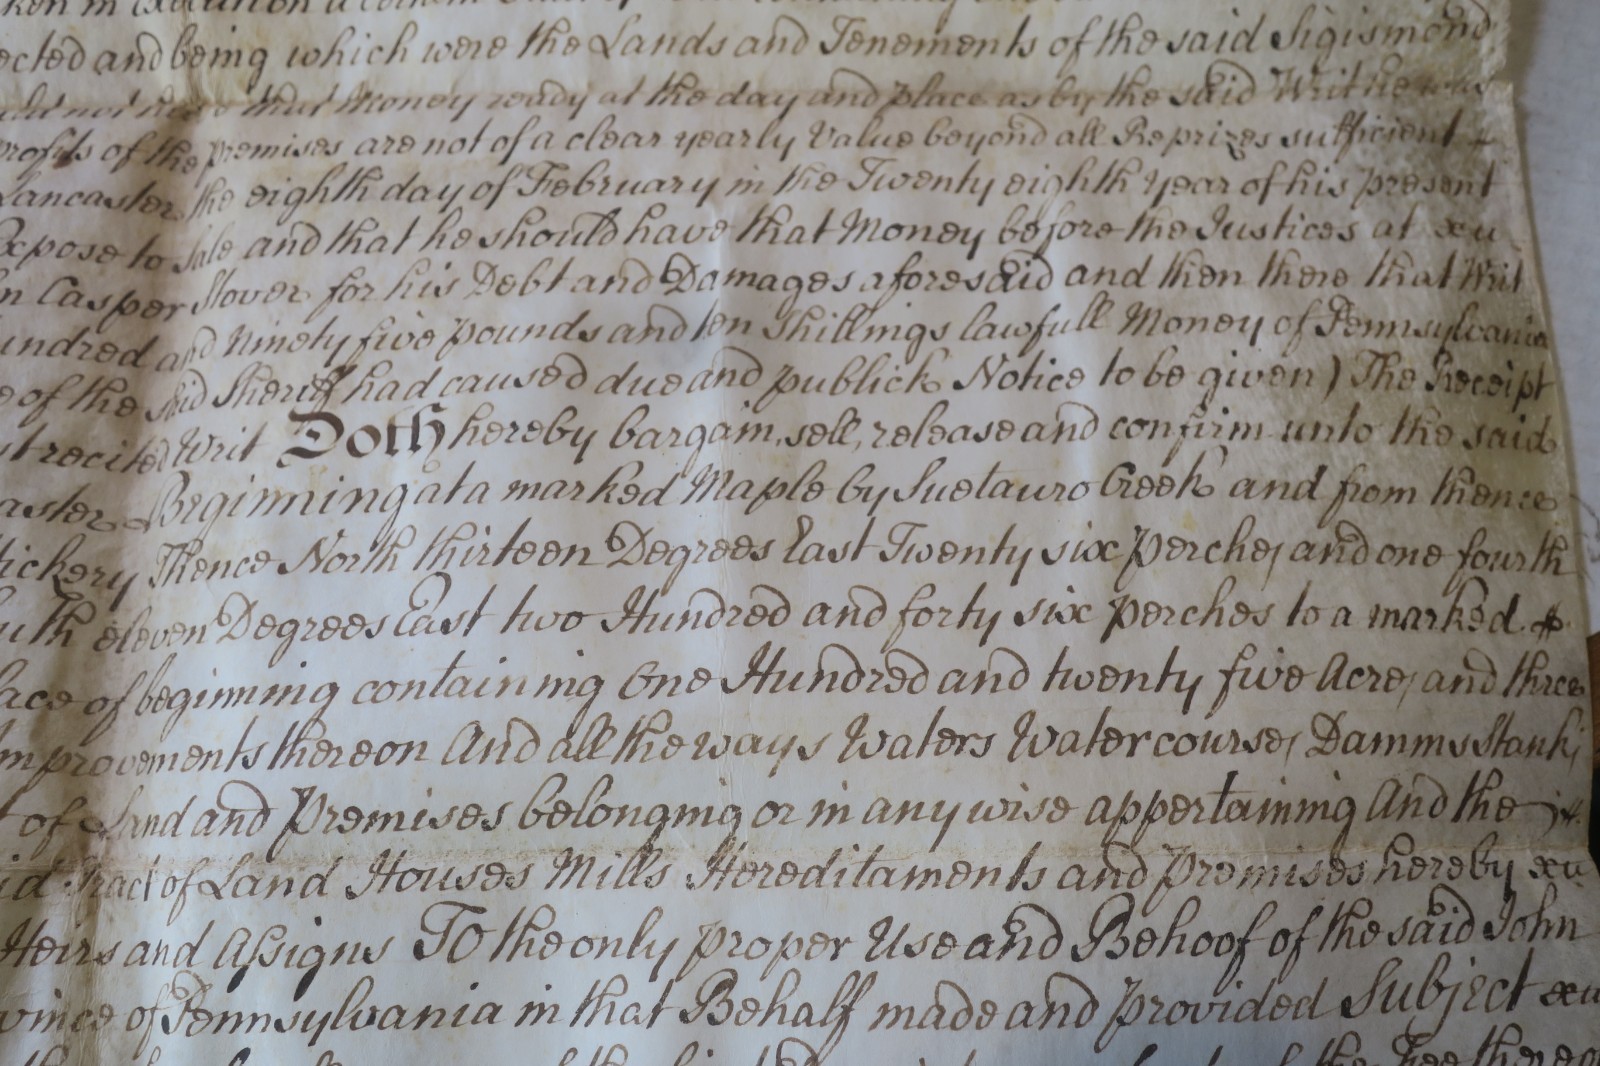 ken in Execution
ected and being which were the Lands and Tenements of the said Sigismond
that Money ready at the day and place as by the said Writ he was
profits of the premises are not of a clear yearly Value beyond all Reprizes sufficient
Lancaster the eighth day of February in the Twenty eighth Year of his present
Expose to sale and that he should have that Money before the Justices at
n Casper Stover for his Debt and Damages aforesaid and then there that Writ
undred and Ninety five pounds and ten Shillings lawfull Money of Pennsylvania
e of the said Sheriff had caused due and publick Notice to be given) The Receipt
st recited Writ Doth hereby bargain, sell, release and confirm unto the said
aster Beginning at a marked Maple by Suetauro Creek and from thence
Hickery Thence North thirteen Degrees East Twenty six perches and one fourth
uth eleven Degrees East two Hundred and forty six perches to a marked
lace of beginning containing One Hundred and twenty five Acres and three
Improvements thereon And all the ways Waters Watercourses Damms Stanks
t of Land and Premises belonging or in any wise appertaining And the
id Tract of Land Houses Mills Hereditaments and Premises hereby
Heirs and Assigns To the only proper Use and Behoof of the said John
vince of Pennsylvania in that Behalf made and provided Subject
of the